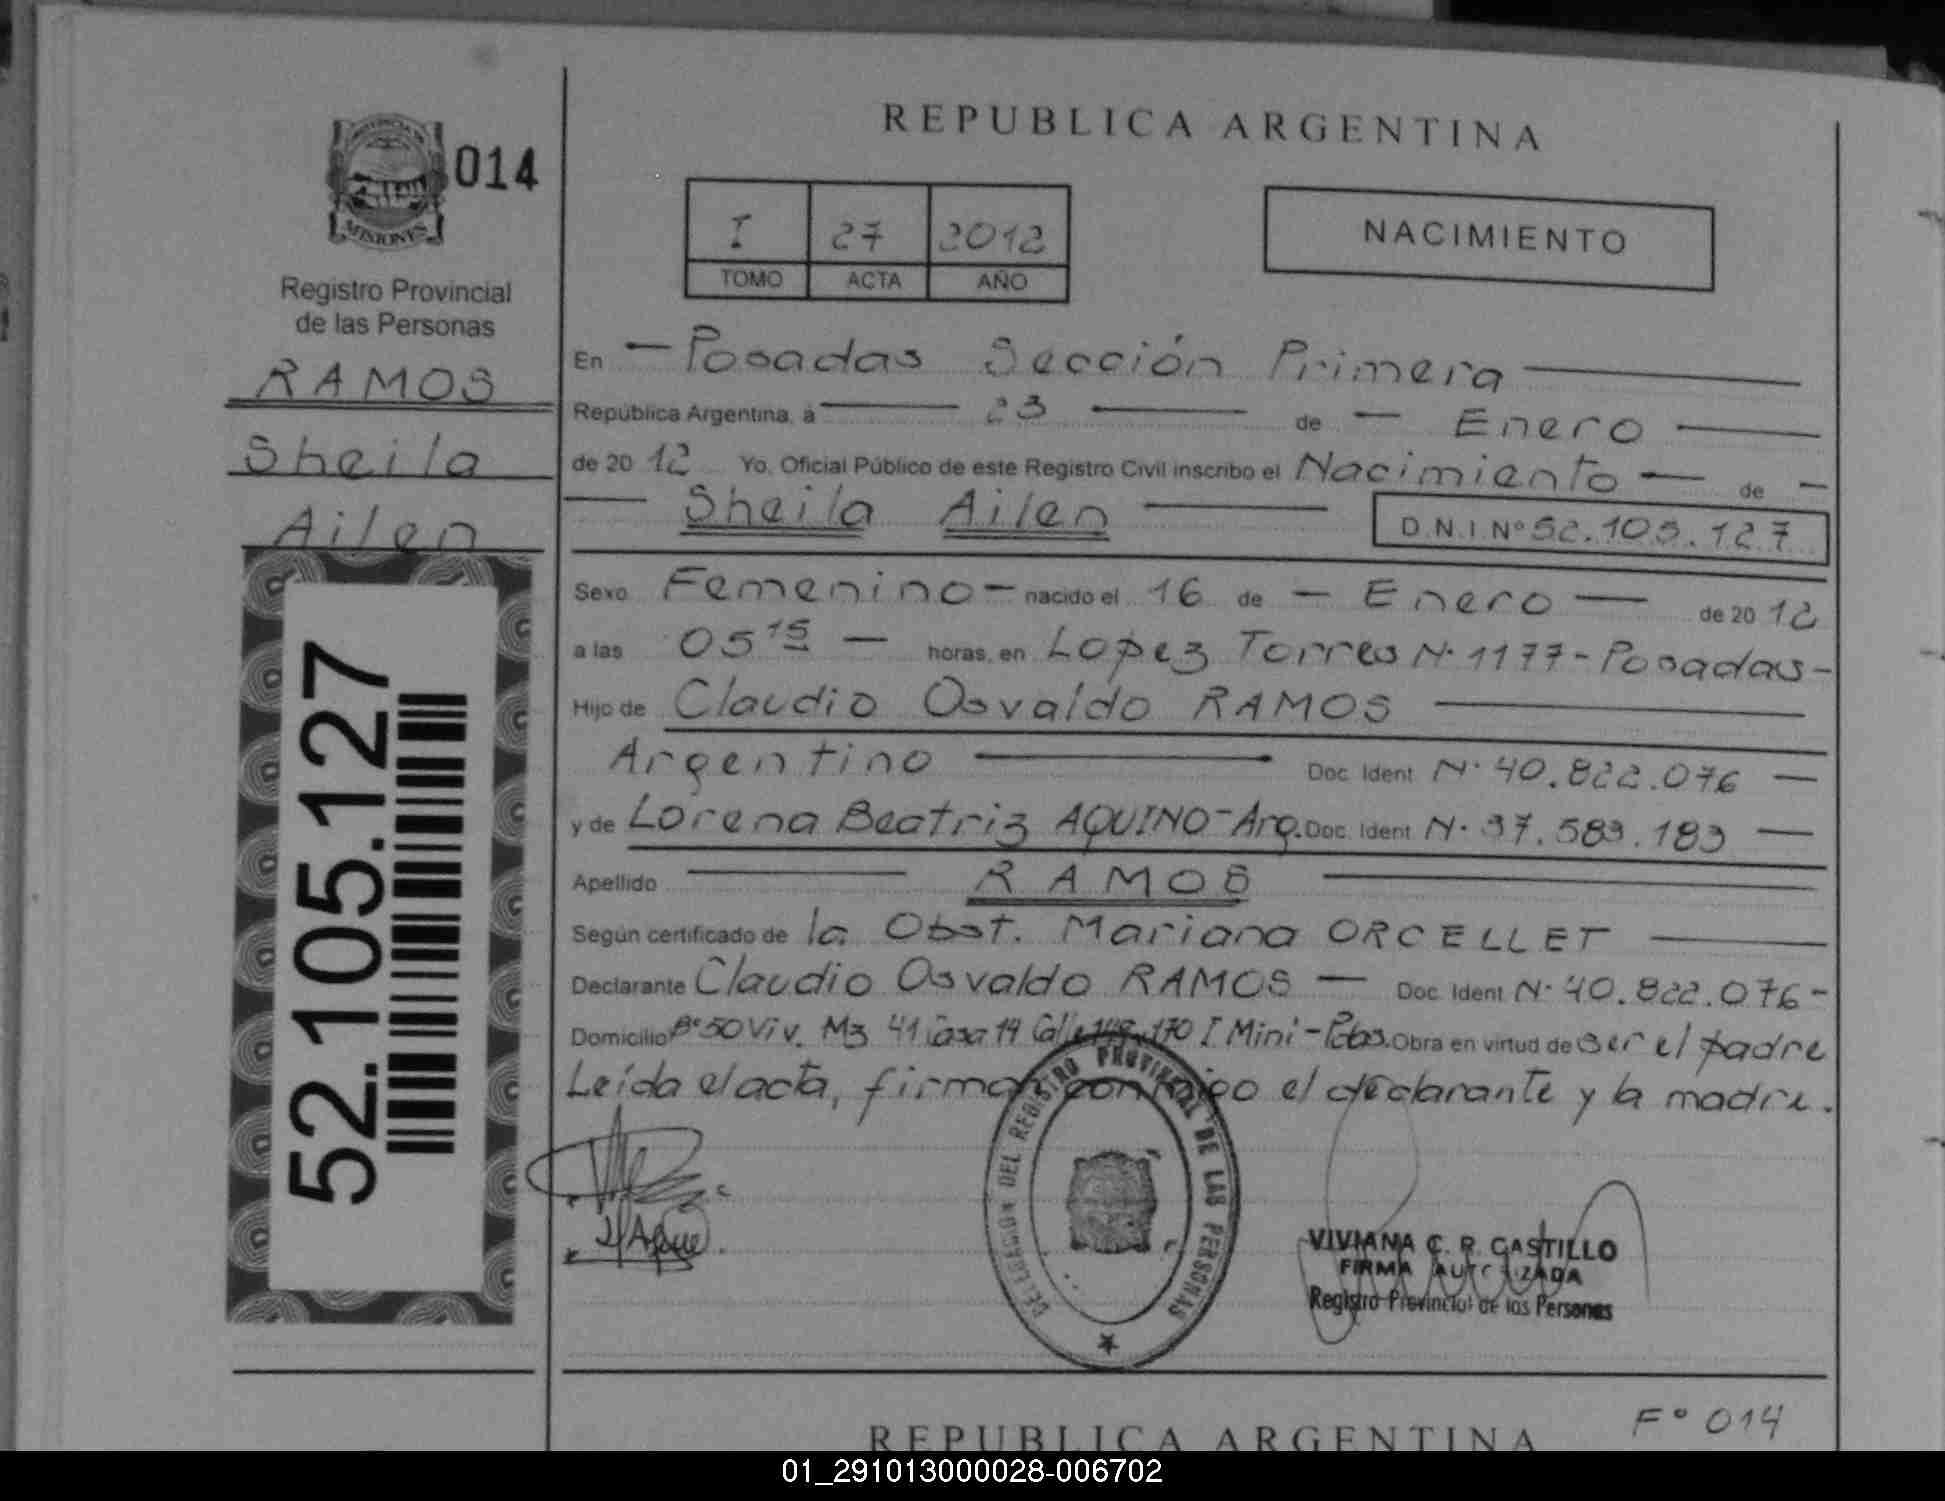 REPUBLICA ARGENTINA
PROVINCIA DE
MISIONES
014
Registro Provincial
de las Personas
RAMOS
Sheila
Ailen
52.105.127
I 27 2012
TOMO ACTA AÑO
NACIMIENTO
En — Posadas Sección Primera —
República Argentina, a — 23 — de — Enero —
de 2012 Yo, Oficial Público de este Registro Civil inscribo el Nacimiento — de —
— Sheila Ailen — D.N.I. Nº 52.105.127
Sexo Femenino — nacido el 16 de — Enero — de 2012
a las 05 15 — horas, en Lopez Torres N· 1177 - Posadas -
Hijo de Claudio Osvaldo RAMOS —
Argentino — Doc. Ident. N· 40.822.076 —
y de Lorena Beatriz AQUINO - Arg. Doc. Ident. N· 37.583.183 —
Apellido — RAMOS —
Según certificado de la Obst. Mariana ORCELLET —
Declarante Claudio Osvaldo RAMOS — Doc. Ident. N· 40.822.076 -
Domicilio Bº 50 Viv. Mz 41 Casa 14 Calle 170 I Mini - Pdas. Obra en virtud de ser el padre
Leída el acta, firman conmigo el declarante y la madre.
DELEGACION DEL REGISTRO PROVINCIAL DE LAS PERSONAS
VIVIANA C. R. CASTILLO
FIRMA AUTORIZADA
Registro Provincial de las Personas
Fº 014
REPUBLICA ARGENTINA
01_291013000028-006702